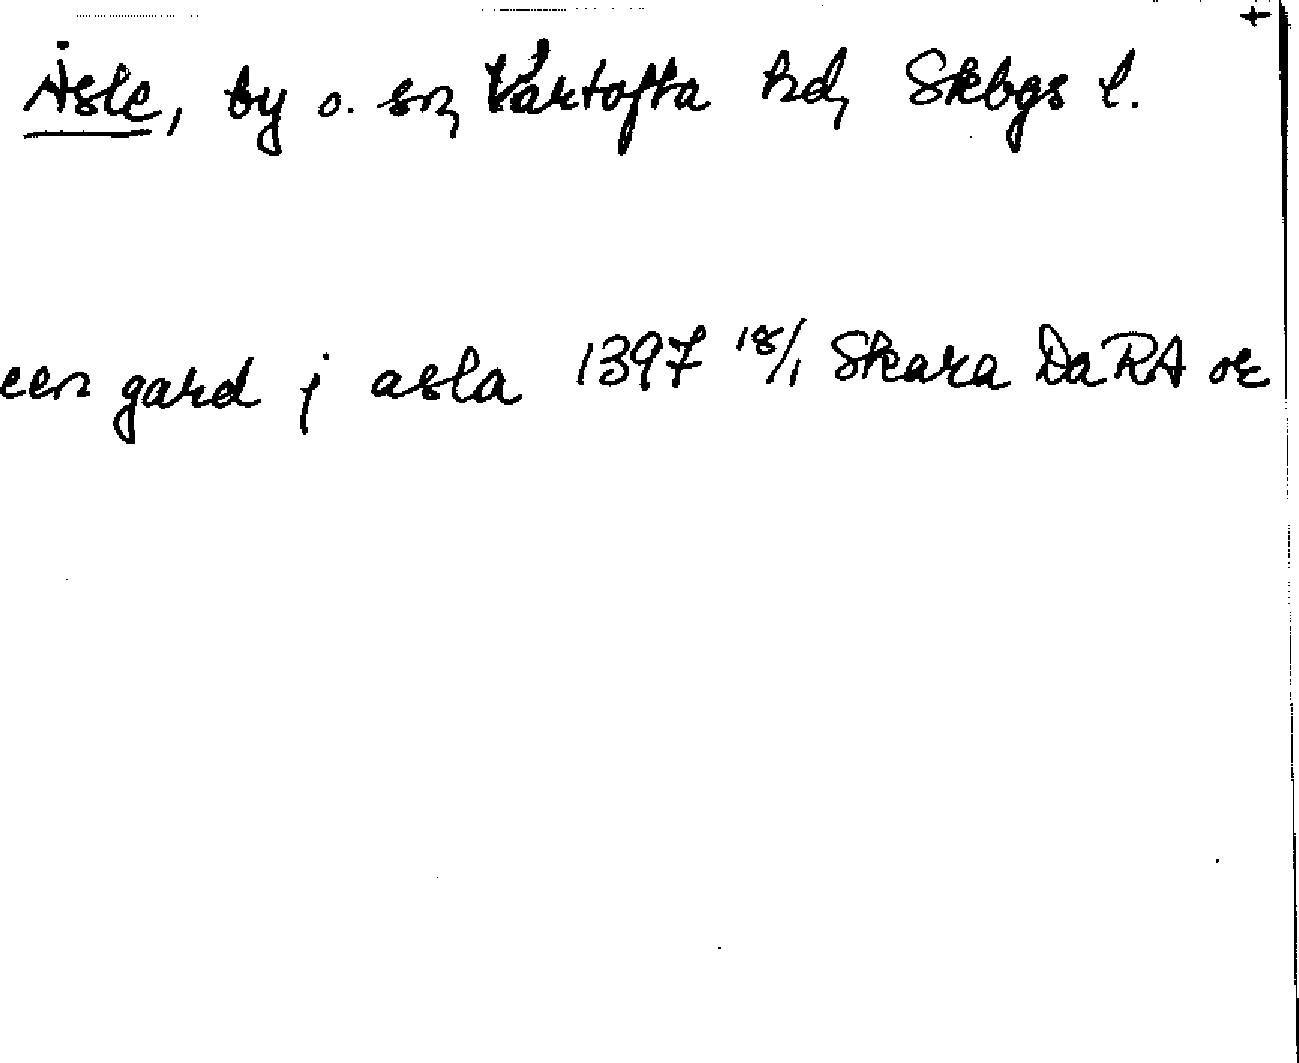 Åsle, by o. sn, Vartofta hd, Skbgs l.
een gard j asla 1397 18/1 Skara DaRA or